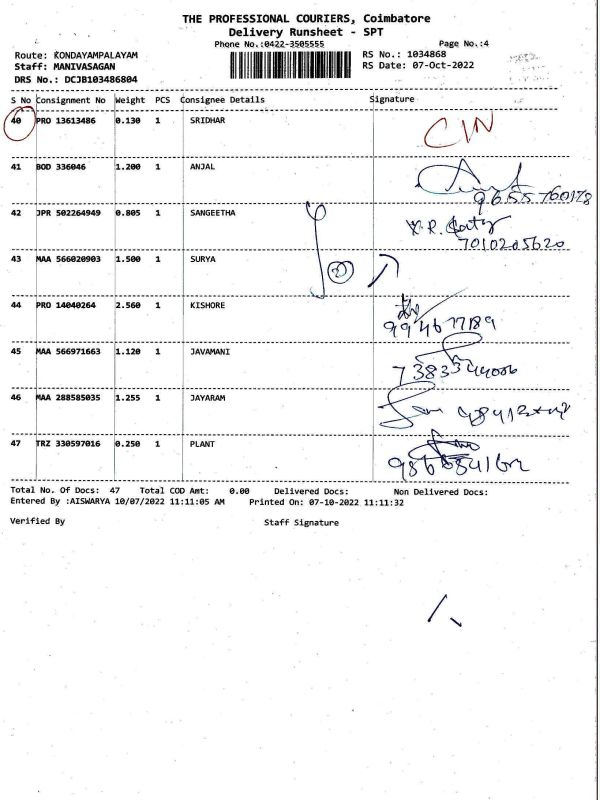 THE PROFESSIONAL COURIERS, Coimbatore
Delivery Runsheet - SPT
Phone No.:0422-3505555 Page No.:4
Route: KONDAYAMPALAYAM RS No.: 1034868
Staff: MANIVASAGAN RS Date: 07-Oct-2022
DRS No.: DCJB103486804
S No Consignment No Weight PCS Consignee Details Signature
40 PRO 13613486 0.130 1 SRIDHAR CIN
41 BOD 336046 1.200 1 ANJAL
9655760178
42 JPR 502264949 0.805 1 SANGEETHA
7010205620
43 MAA 566020903 1.500 1 SURYA
44 PRO 14040264 2.560 1 KISHORE
9946777189
45 MAA 566971663 1.120 1 JAVAMANI
46 MAA 288585035 1.255 1 JAYARAM
47 TRZ 330597016 0.250 1 PLANT
Total No. Of Docs: 47 Total COD Amt: 0.00 Delivered Docs: Non Delivered Docs:
Entered By :AISWARYA 10/07/2022 11:11:05 AM Printed On: 07-10-2022 11:11:32
Verified By Staff Signature